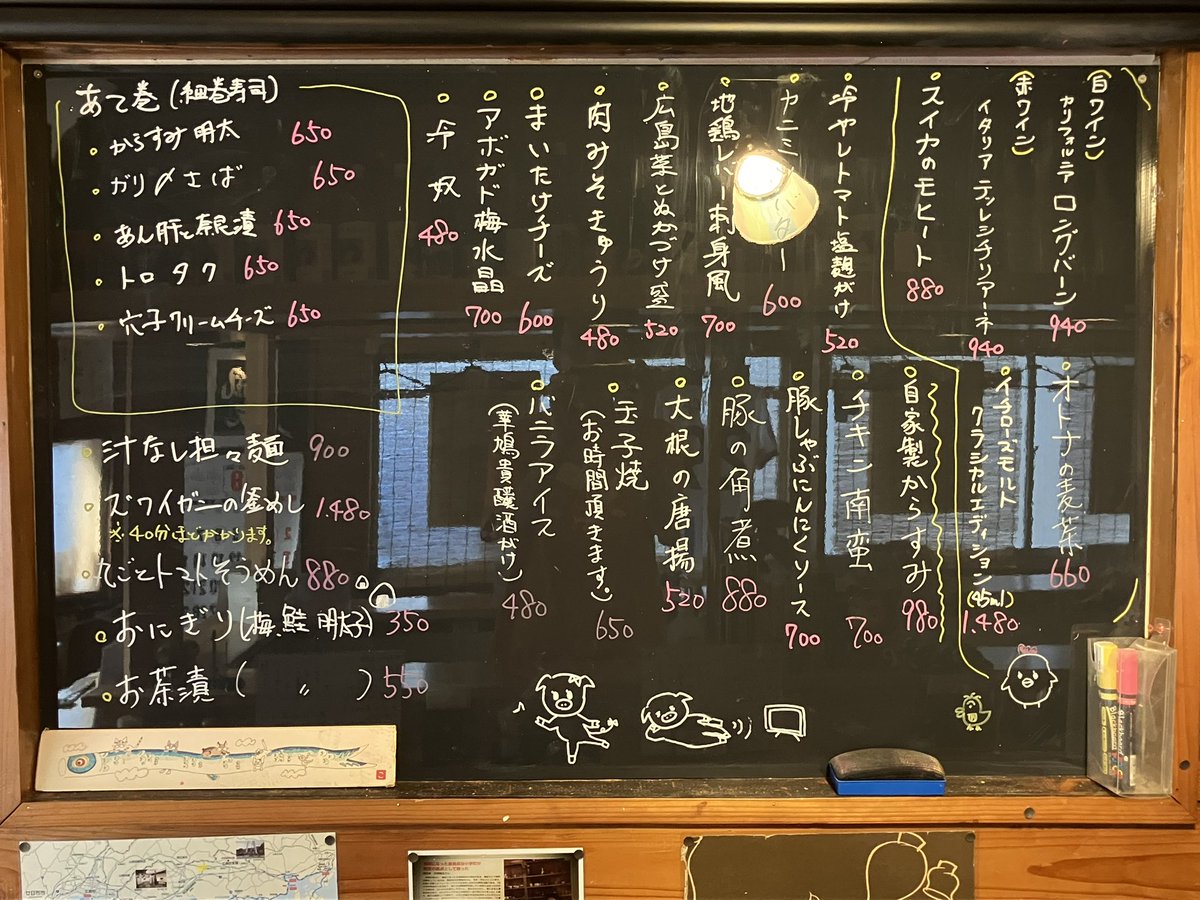 (白ワイン)
カリフォルニア ロングバーン
940
(赤ワイン)
イタリア テッレシチリアーネ
940
・スイカのモヒート
880
・冷ヤレトマト塩麹がけ
520
バター
600
・地鶏レバー刺身風
700
・広島菜とぬかづけ盛
520
・肉みそきゅうり
480
・まいたけチーズ
600
・アボガド梅水晶
700
・冷奴
480
・オトナの麦茶
660
・イチローズモルト
クラシカルエディション(45ml)
1.480
・自家製からすみ
980
・チキン南蛮
700
・豚しゃぶにんにくソース
700
・豚の角煮
880
・大根の唐揚
520
・玉子焼
(お時間頂きます。)
650
・バニラアイス
(華鳩貴醸酒がけ)
480
あて巻(細巻寿司)
・からすみ明太 650
・ガリ〆さば 650
・あん肝と奈良漬 650
・トロタク 650
・穴子クリームチーズ 650
・汁なし担々麺 900
・ズワイガニの釜めし 1.480
※40分ほどかかります。
ごとトマトそうめん 880
・おにぎり(梅、鮭、明太子) 350
・お茶漬( 〃 ) 550